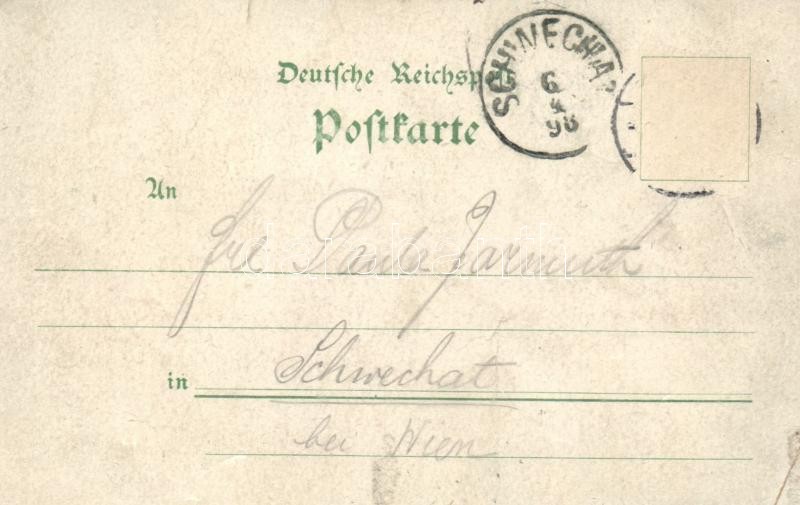 Deutsche Reichspost
Postkarte
SCHWECHAT
6
4
98
An
Frl Paula Jarmuth
in Schwechat
bei Wien